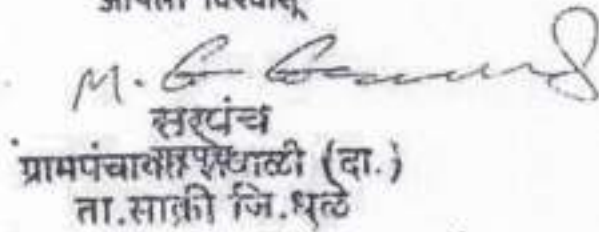 आपला विश्वासू
M. G.
सरपंच
ग्रामपंचायत (दा.)
ता.साक्री जि.धुळे